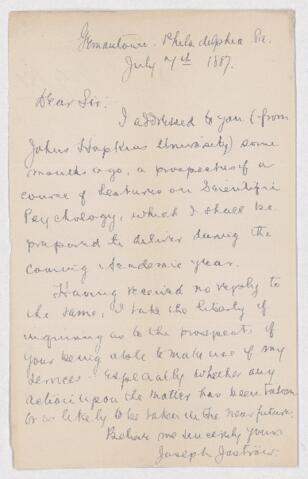 Germantown. Philadelphia Pa.
July 7th 1887.
Dear Sir:
I addressed to you (from
Johns Hopkins University) some
months ago, a prospectus of a
course of lectures on Scientific
Psychology, which I shall be
prepared to deliver during the
coming Academic year.
Having received no reply to
the same, I take the liberty of
inquiring as to the prospects of
your being able to make use of my
services - especially whether any
action upon the matter has been taken
or is likely to be taken in the near future.
Believe me sincerely yours
Joseph Jastrow.